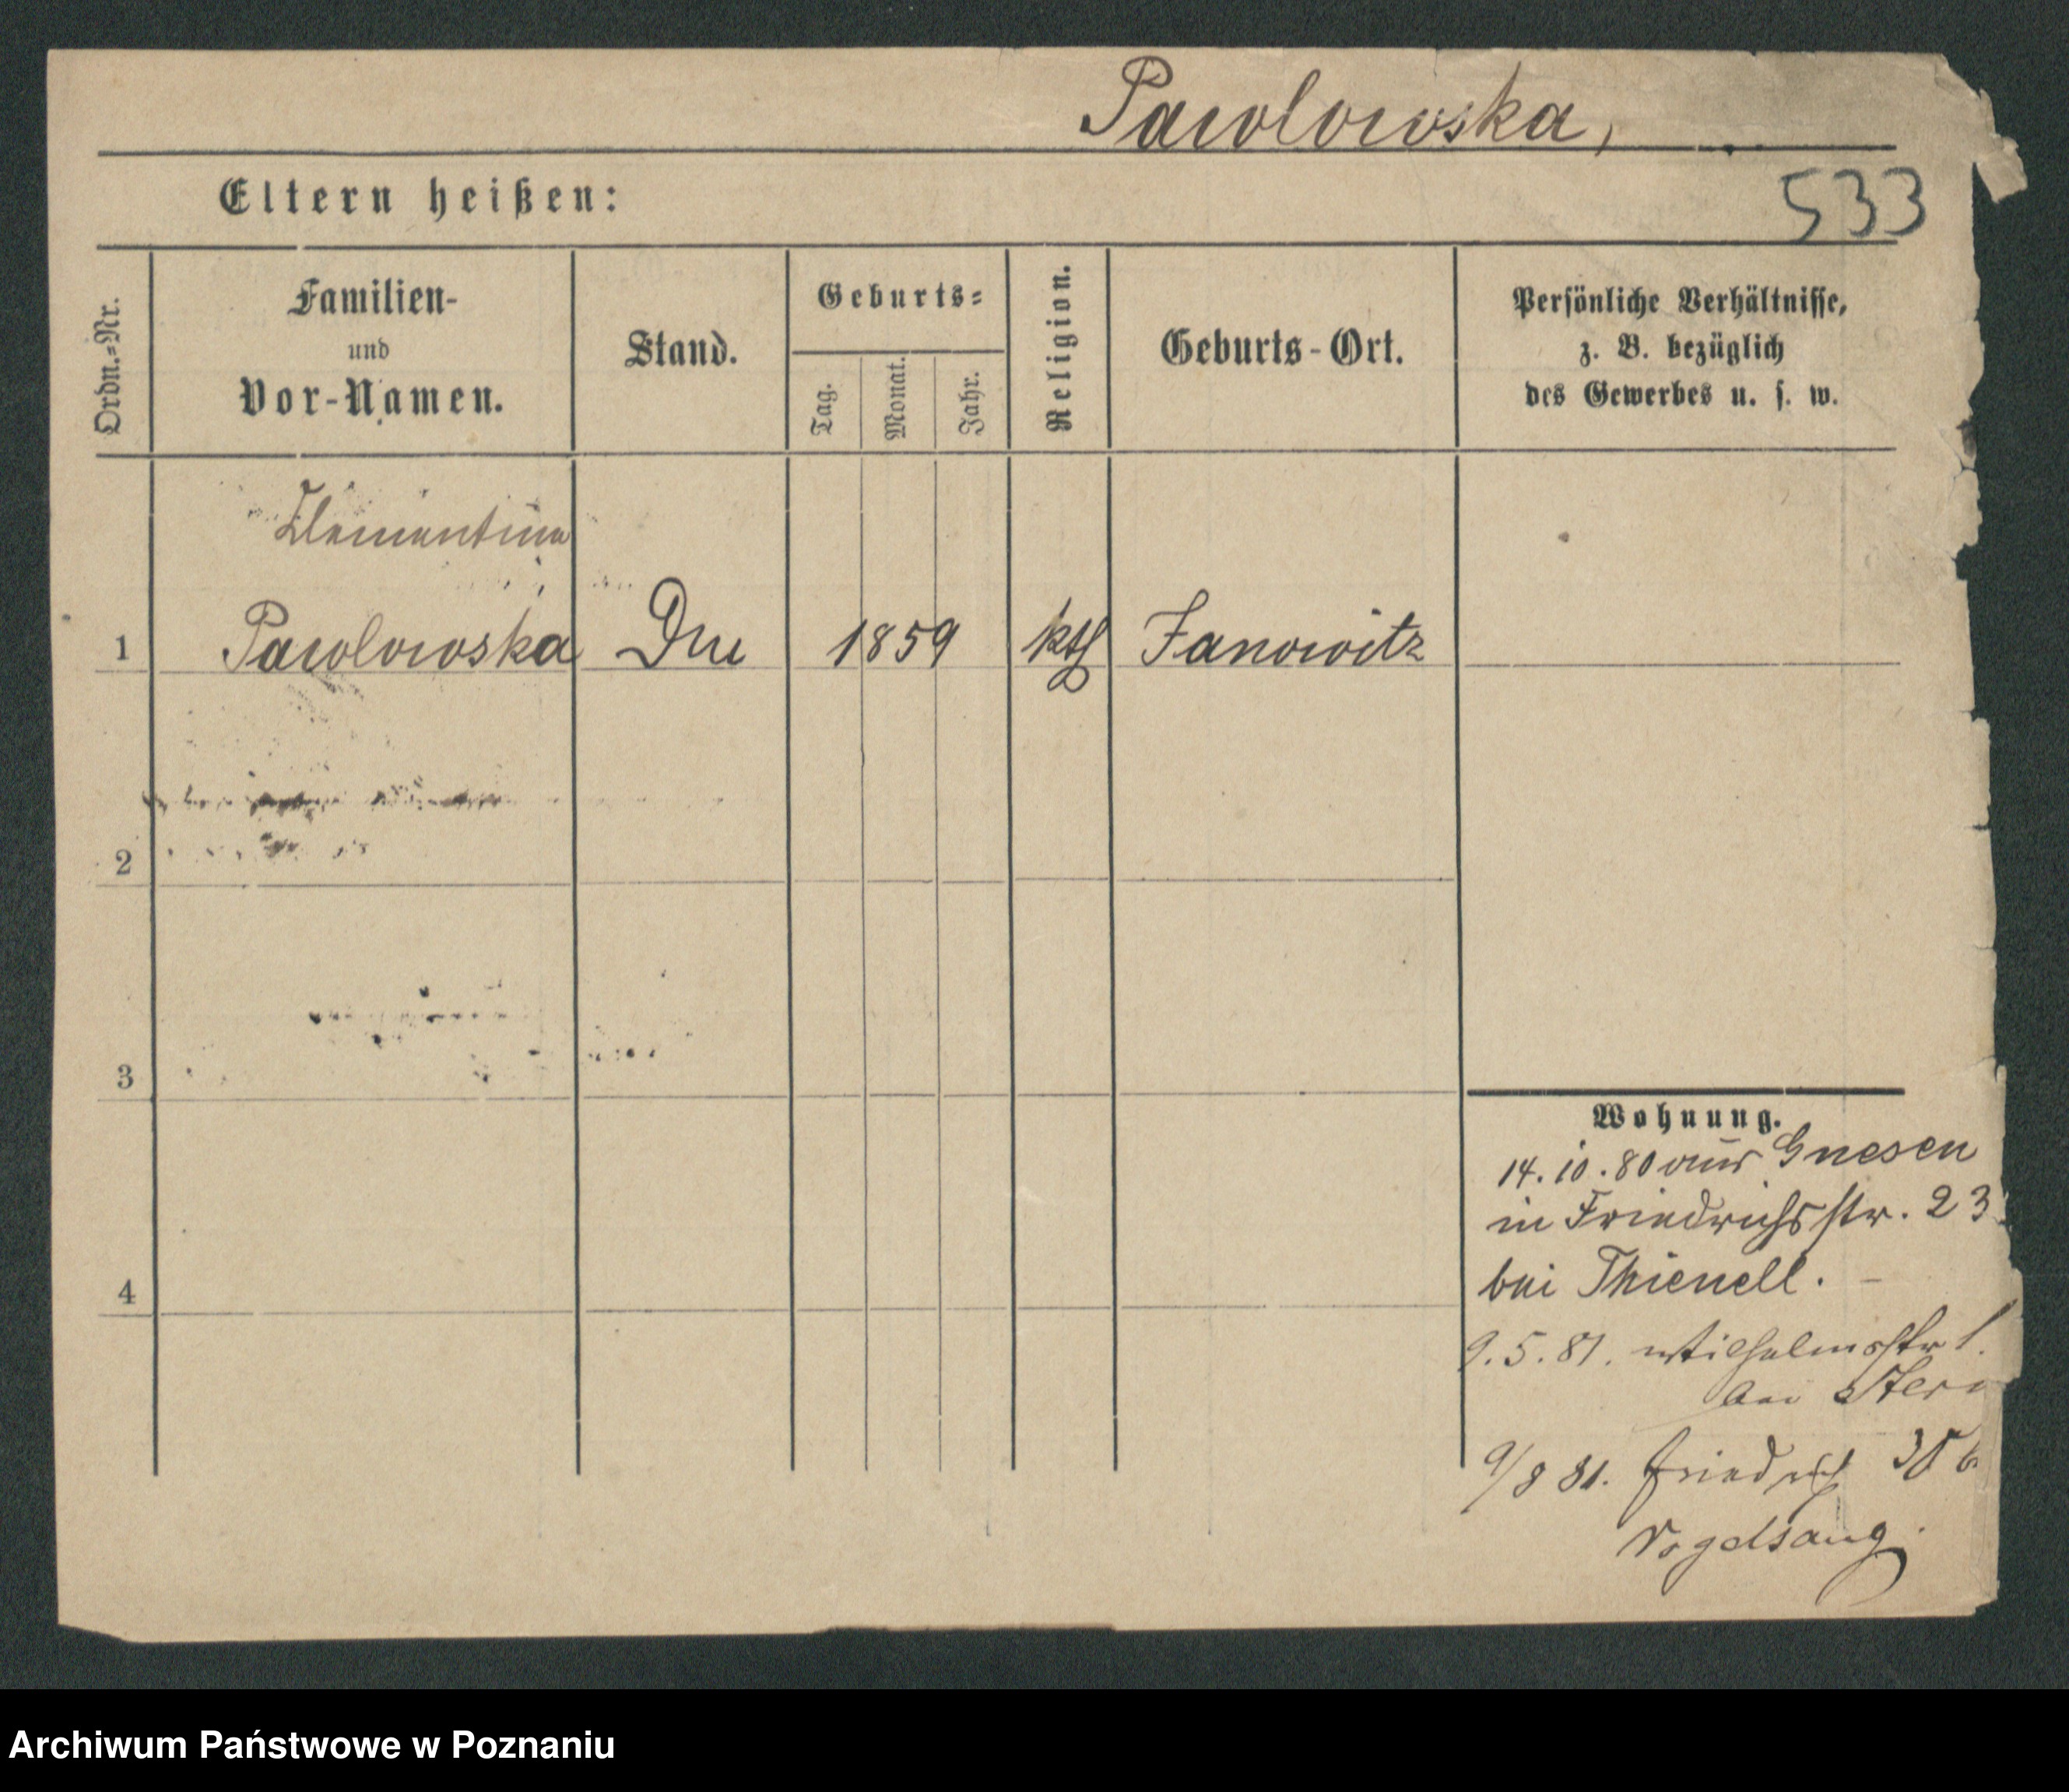 Pawlowska,
Eltern heißen:
533
Ordn.-Nr.
Familien-
und
Vor-Namen.
Stand.
Geburts-
Tag.
Monat.
Jahr.
Religion.
Geburts-Ort.
Persönliche Verhältnisse,
z. B. bezüglich
des Gewerbes u. s. w.
Clementine
1 Pawlowska 1859 kth Janowitz
2
3
4
Wohnung.
14.10.80 aus Gnesen
in Friedrichsstr. 23
bei Thienell.
9.5.81. Wilhelmsstr 1.
bei Stern
9/8 81. Friedrich
Vogelsang.
Archiwum Państwowe w Poznaniu